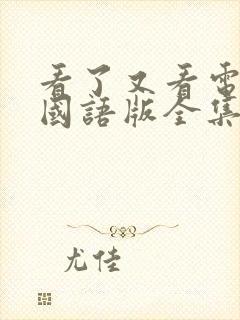 看了又看電
國語版全集
尤佳